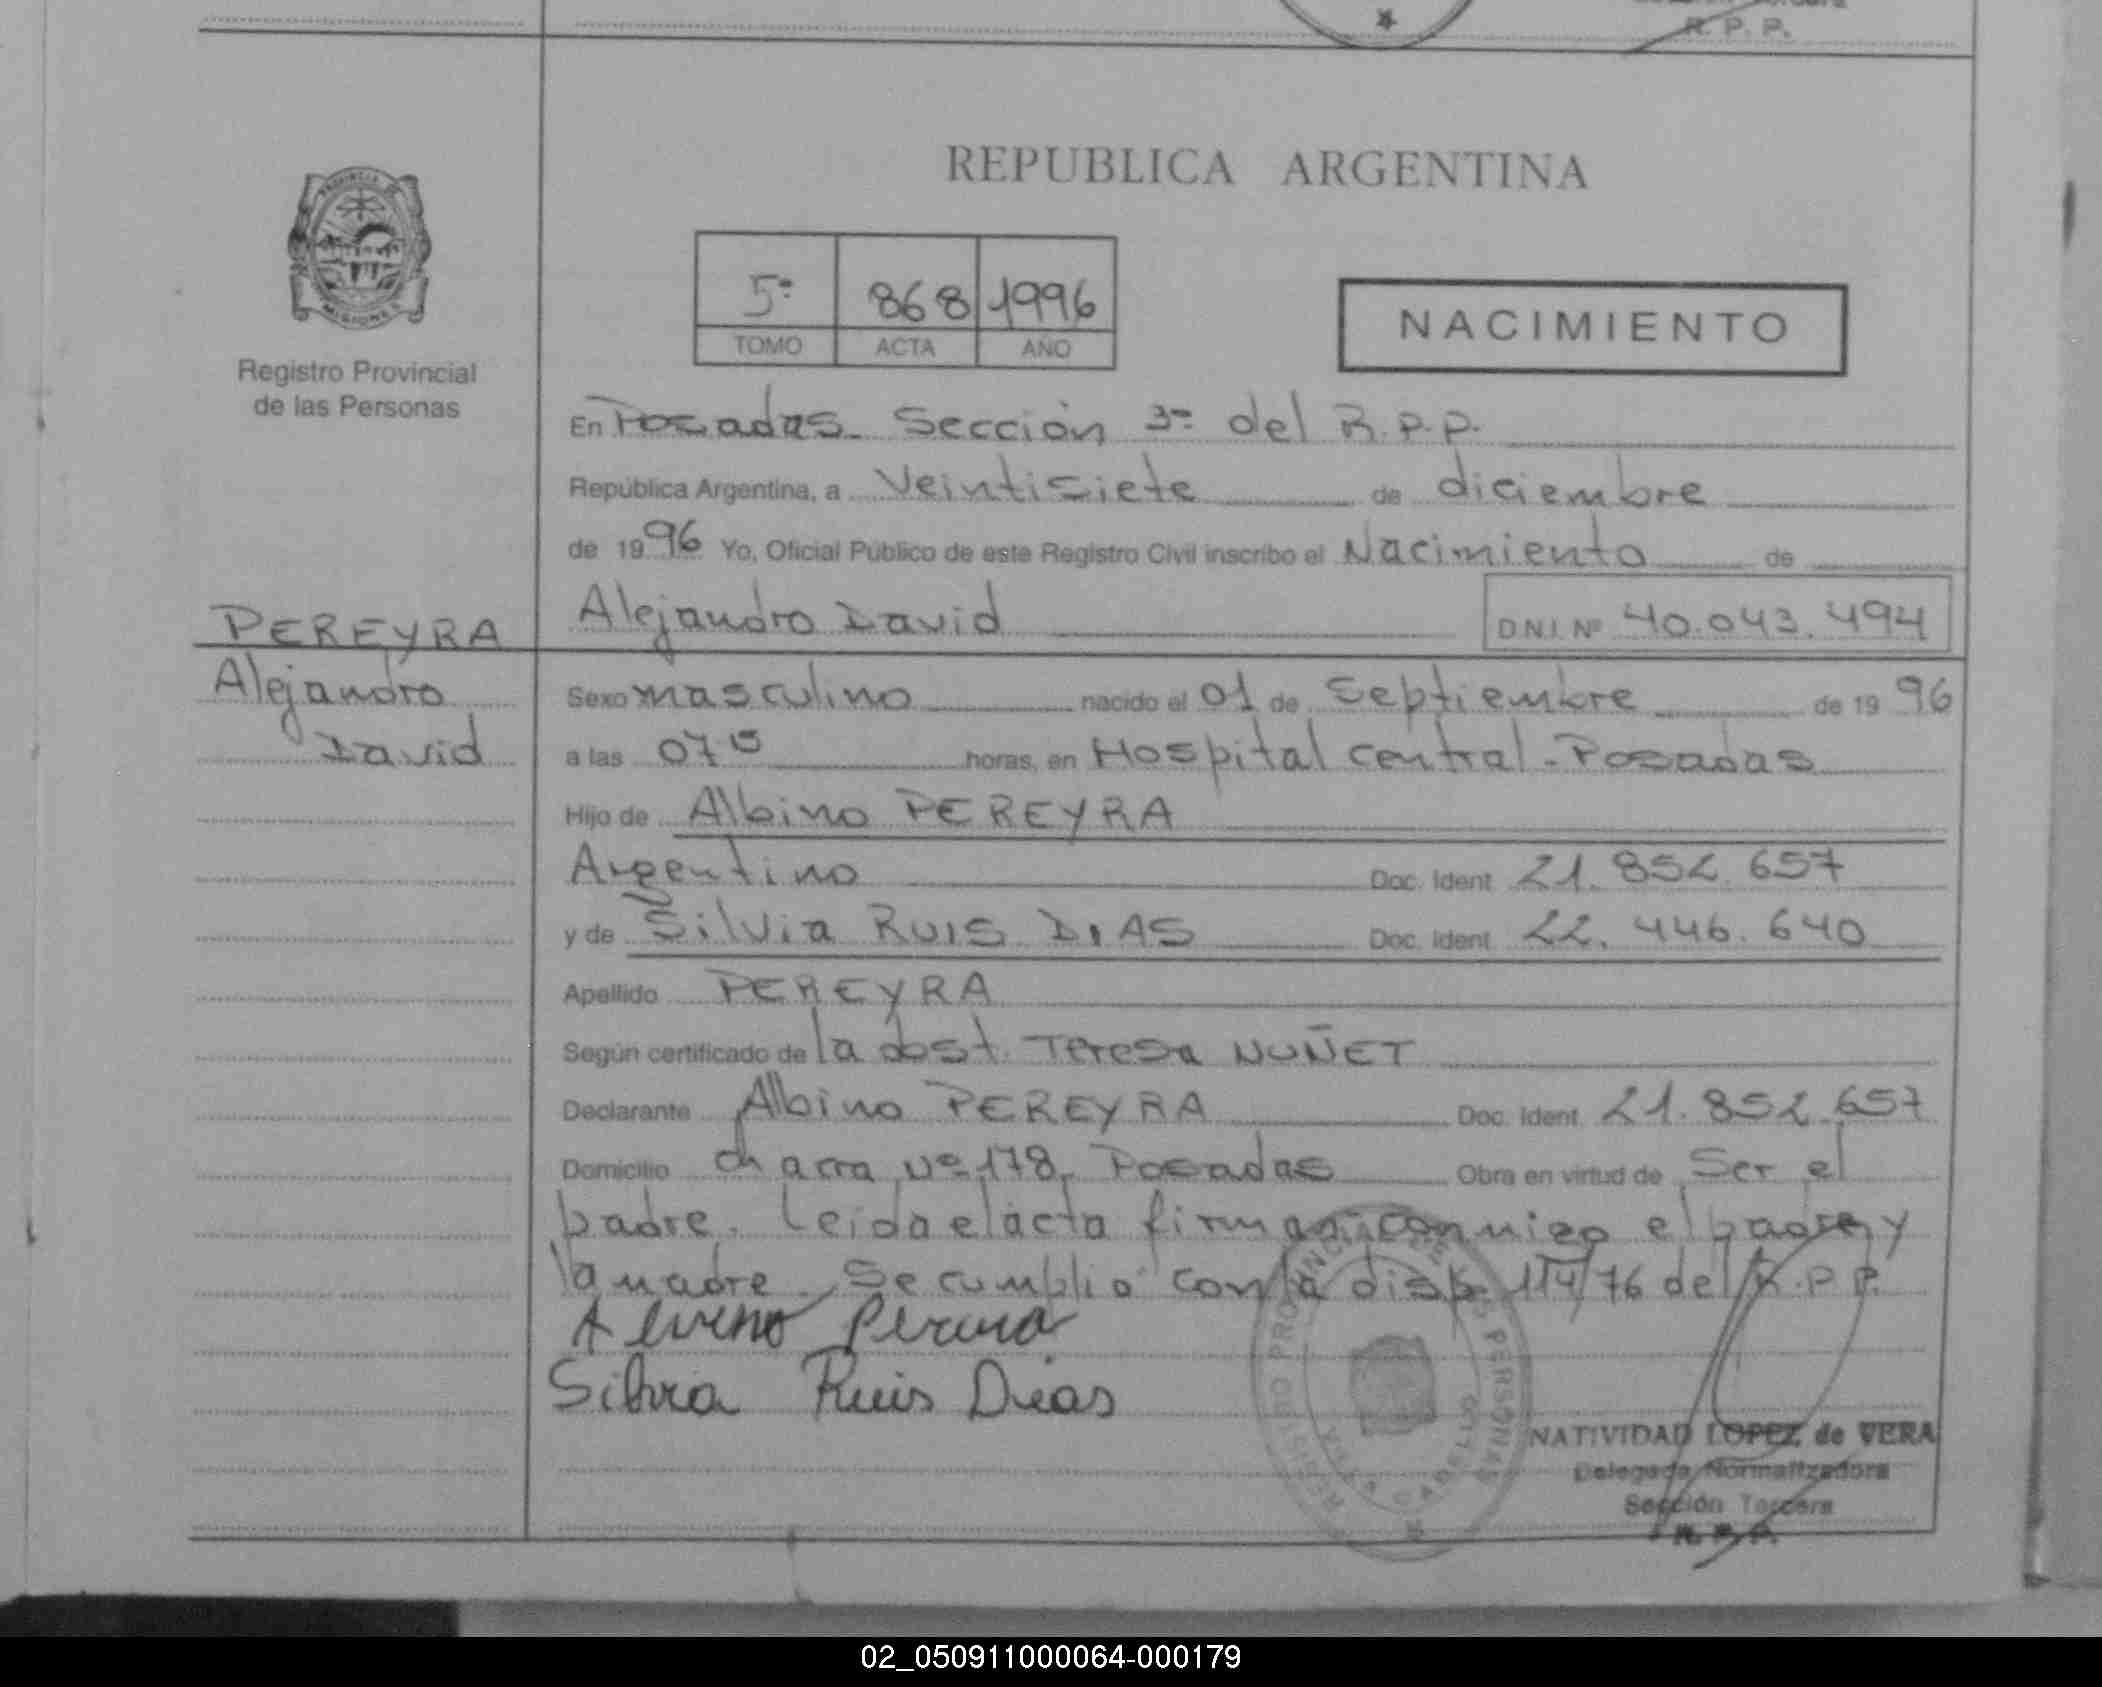 R. P. P.
PROVINCIA DE
MISIONES
Registro Provincial
de las Personas
PEREYRA
Alejandro
David
REPUBLICA ARGENTINA
5º 868 1996
TOMO ACTA AÑO
NACIMIENTO
En Posadas. Sección 3ª del R.P.P.
República Argentina, a Veintisiete de diciembre
de 1996 Yo, Oficial Público de este Registro Civil inscribo el Nacimiento de
Alejandro David D.N.I. Nº 40.043.494
Sexo masculino nacido el 01 de Septiembre de 1996
a las 07 15 horas, en Hospital central - Posadas
Hijo de Albino PEREYRA
Argentino Doc. Ident. 21.852.657
y de Silvia RUIS DIAS Doc. Ident. 22.446.640
Apellido PEREYRA
Según certificado de la obst. Teresa NUÑET
Declarante Albino PEREYRA Doc. Ident. 21.852.657
Domicilio chacra Nº 178. Posadas Obra en virtud de Ser el
padre. Leida el acta firman conmigo el padre y
la madre. Se cumplio con la disp. 114/76 del R.P.P.
Silvia Ruis Dias
REGISTRO PROVINCIAL DE LAS PERSONAS
VILLA CABELLO
NATIVIDAD LOPEZ de VERA
Delegada Normalizadora
Sección Tercera
R.P.P.
02_050911000064-000179